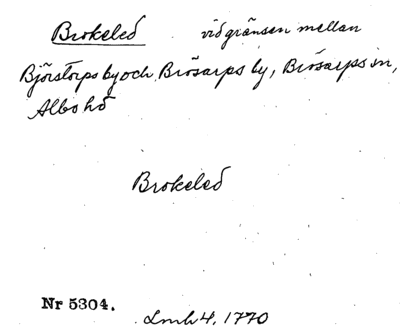 Brokeled vid gränsen mellan
Björstorps by och Brösarps by, Brösarps sn,
Albo hd
Brokeled
Nr 5304. Lmh 4, 1770